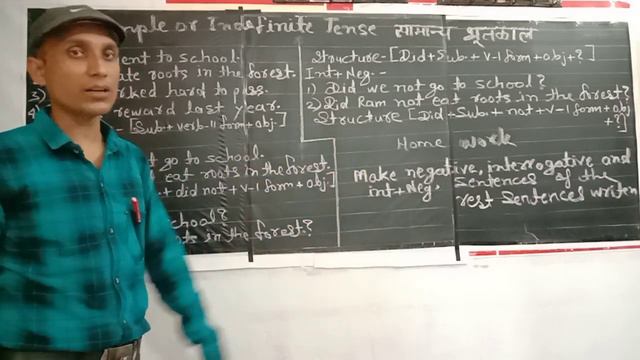 mple or Indefinite Tense सामान्य भूतकाल
ent to school.
ate roots in the forest.
3) rked hard to pass.
4 reward last year.
- [Sub+ verb-II form+obj.]
t go to school.
t eat roots in the forest.
+ did not + v-1 form + obj.]
chool?
ots in the forest?
Structure-[Did+Sub.+v-1 form+obj+?]
Int+Neg:-
1) Did we not go to school?
2) Did Ram not eat roots in the forest?
Structure [Did+Sub.+not+v-1 form+obj
+?]
Home work
Make negative, interrogative and
int+Neg. sentences of the
rest sentences writen